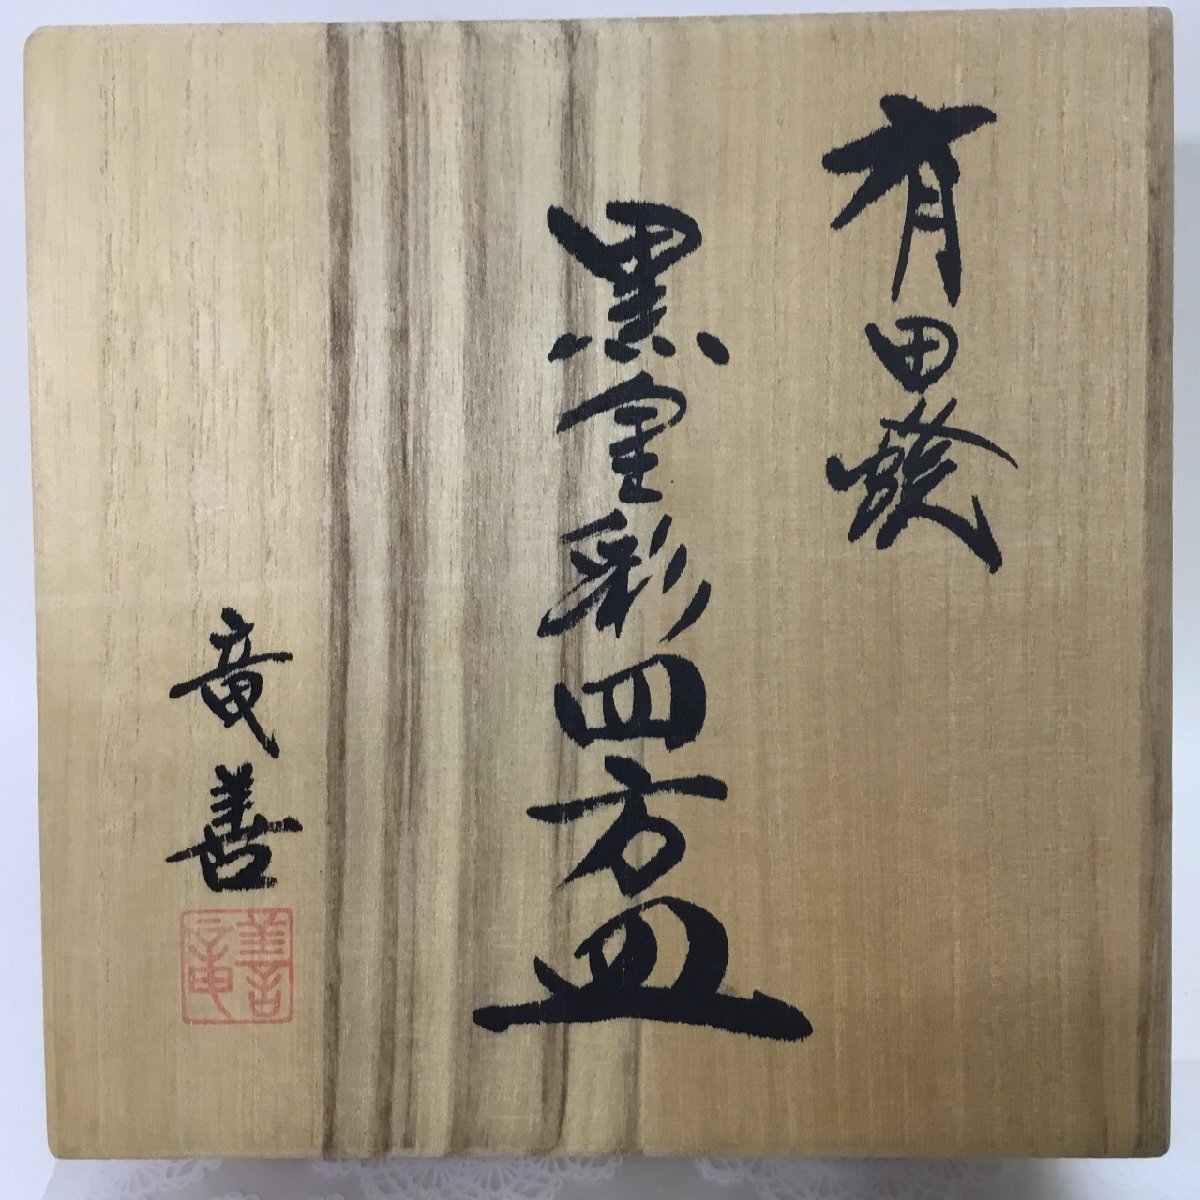 有田焼
黒金彩四方皿
竜善
竜善